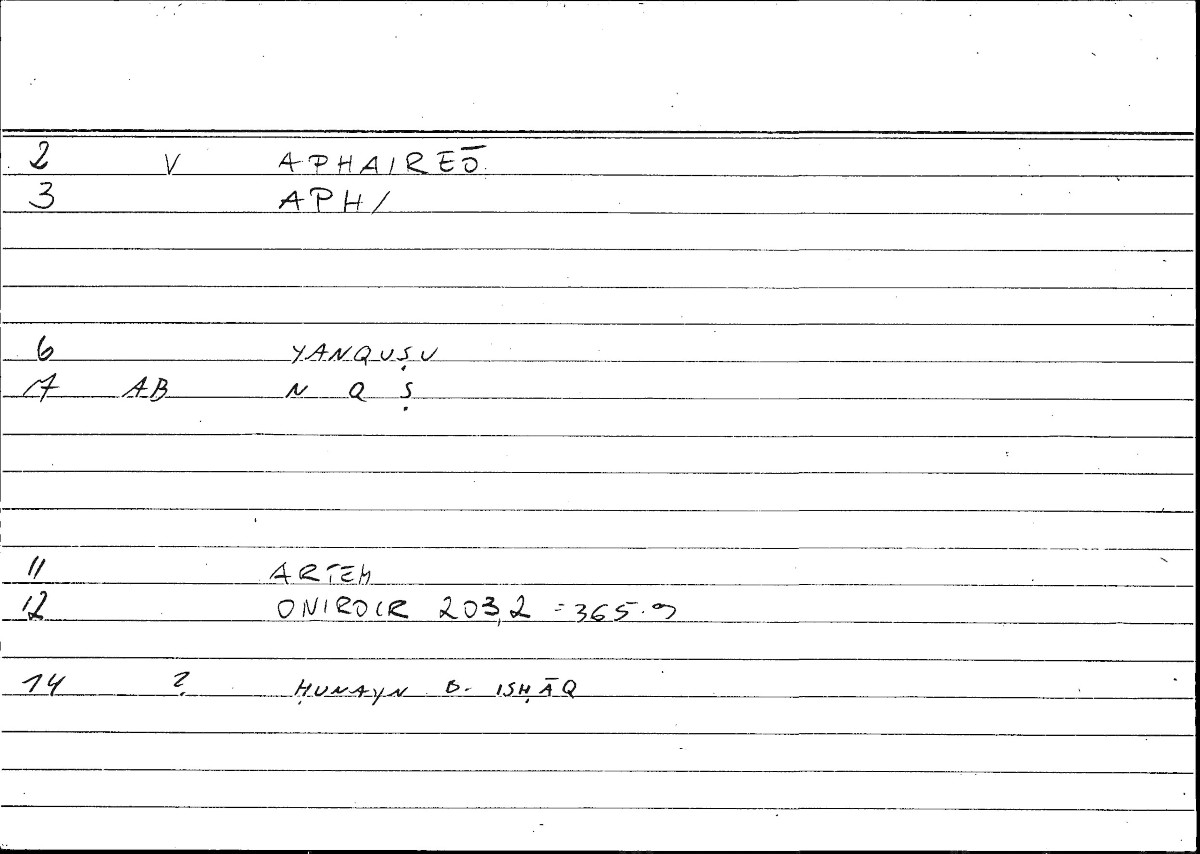 2 V APHAIREŌ
3 APH/
6 YANQUṢU
7 AB N Q Ṣ
11 ARTEM
12 ONIROCR 203,2 = 365.9
14 ? ḤUNAYN B. ISḤĀQ